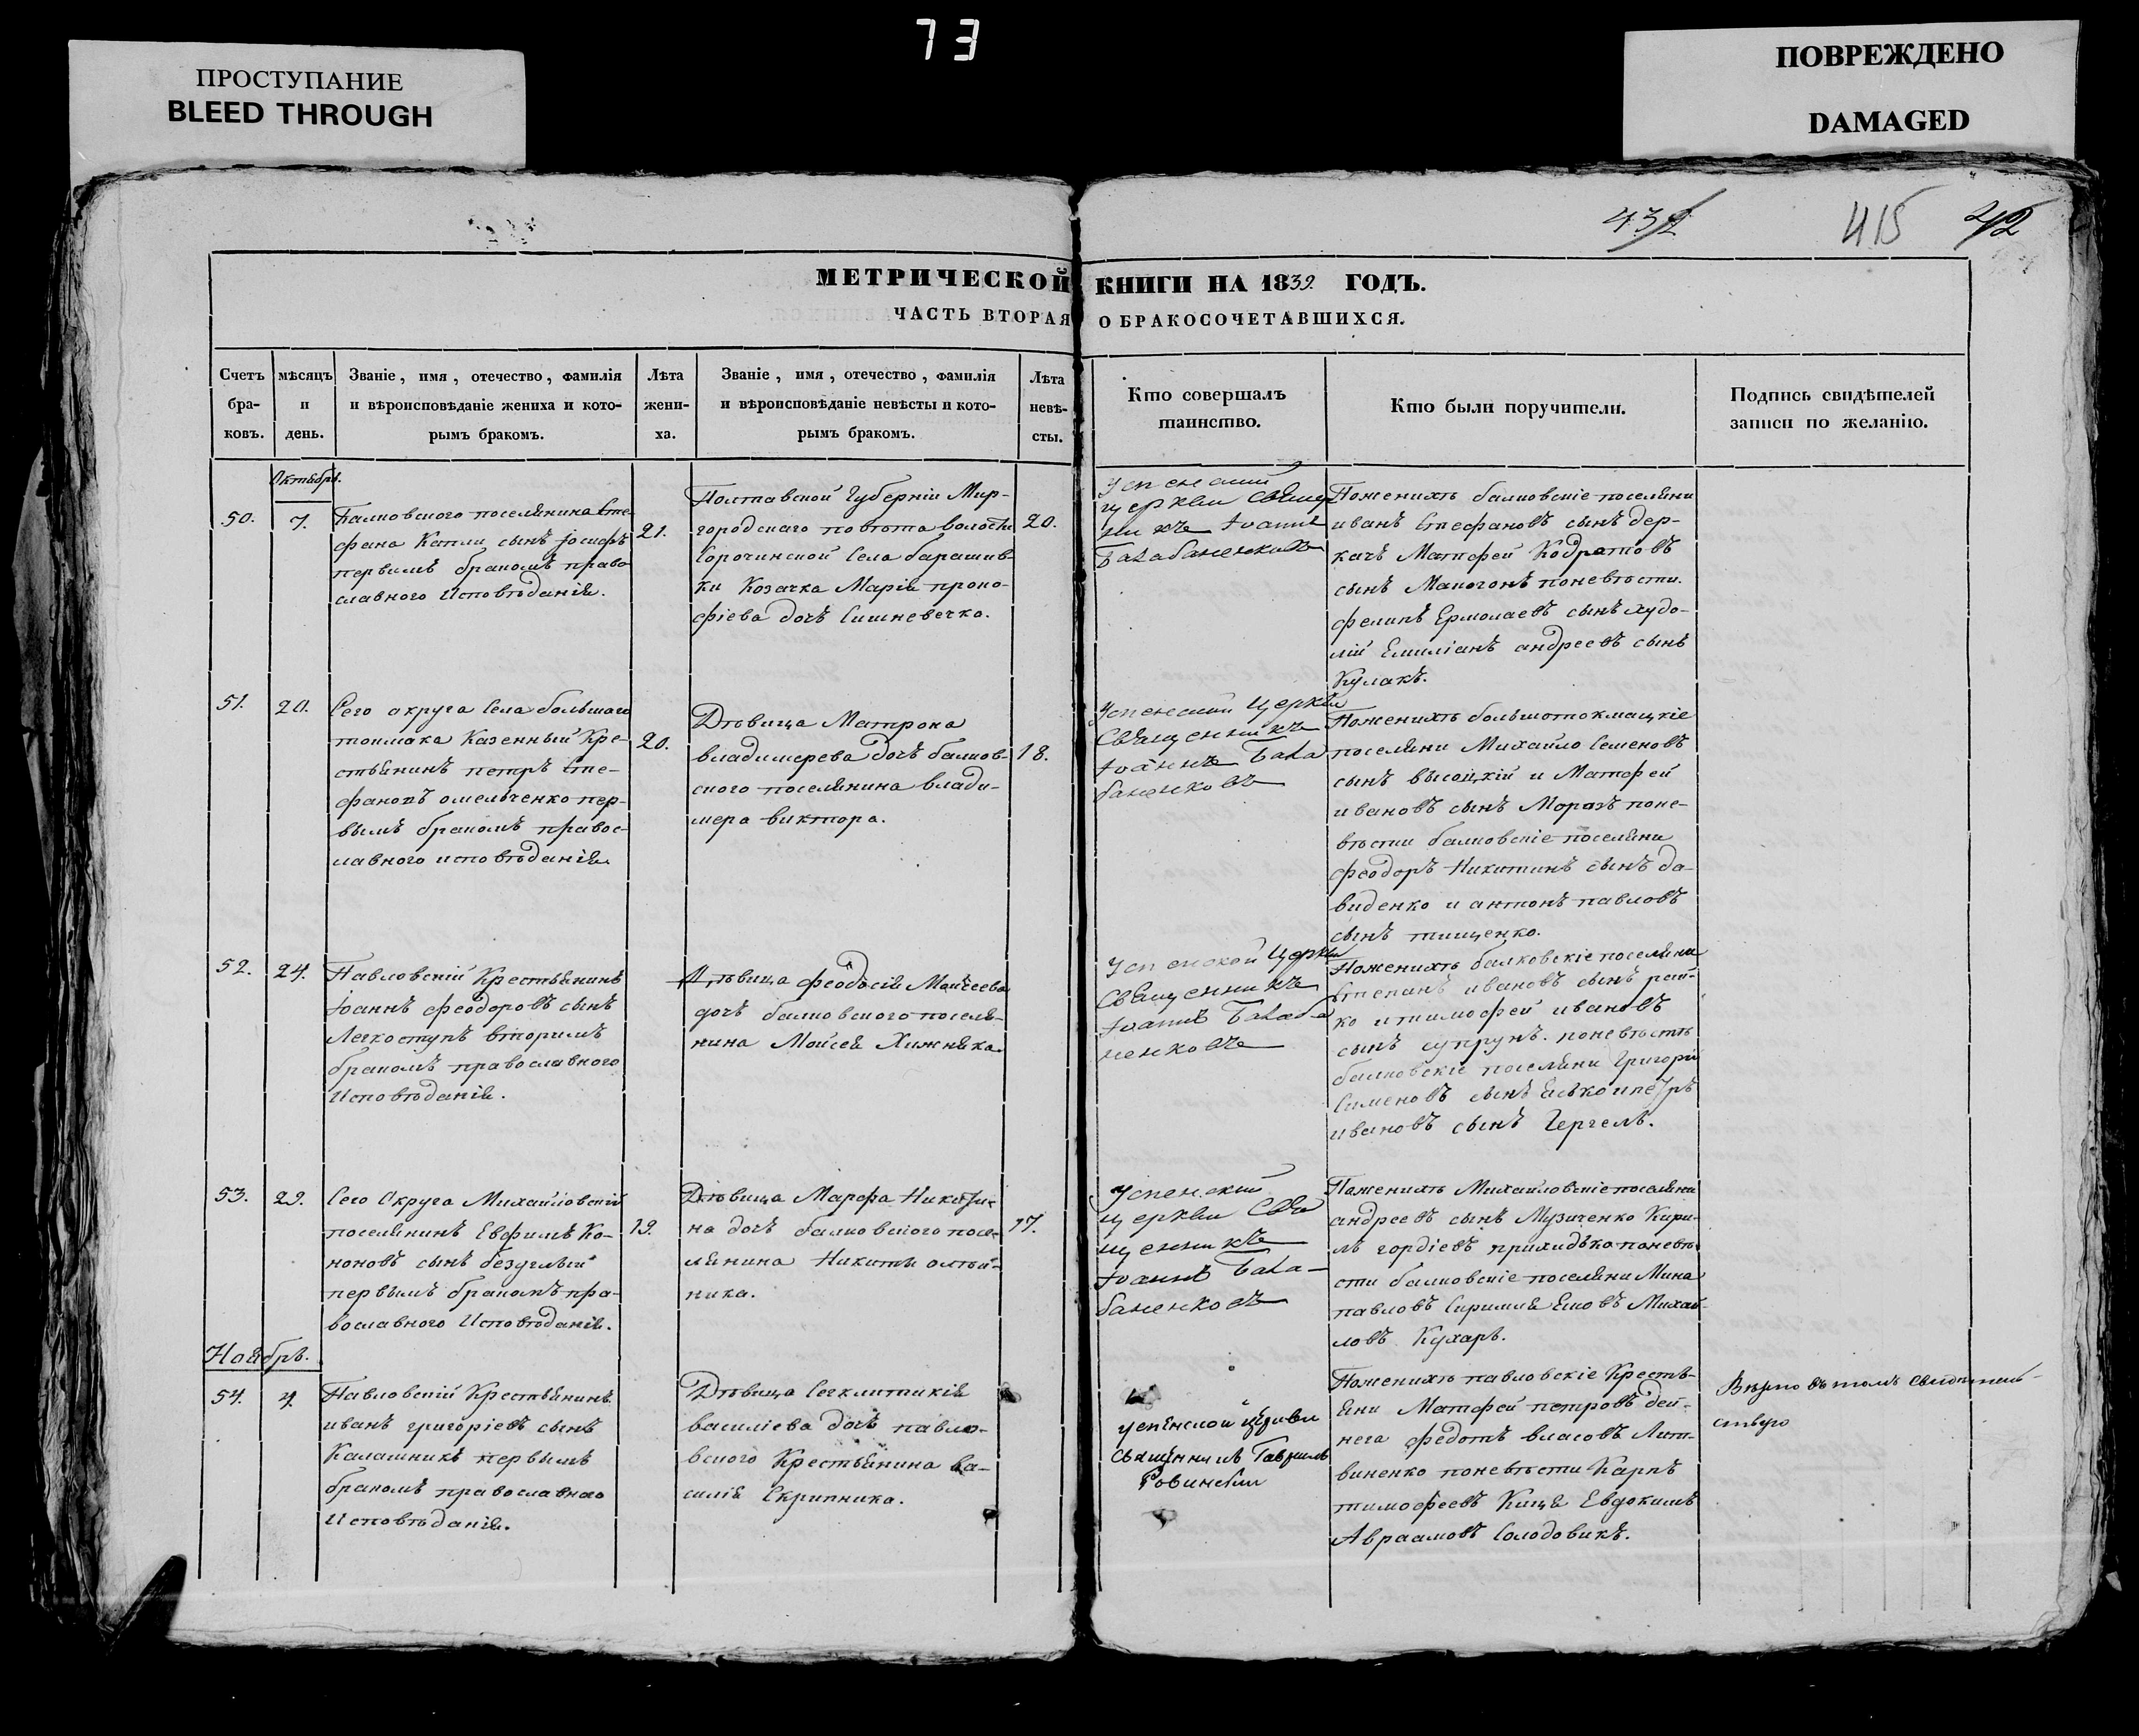 73
ПРОСТУПАНИЕ
BLEED THROUGH
ПОВРЕЖДЕНО
DAMAGED
432
415
42
МЕТРИЧЕСКОЙ КНИГИ НА 1839. ГОДЪ.
ЧАСТЬ ВТОРАЯ О БРАКОСОЧЕТАВШИХСЯ.
Счетъ
бра-
ковъ.
мѣсяцъ
и
день.
Званіе, имя, отечество, фамилія
и вѣроисповѣданіе жениха и кото-
рымъ бракомъ.
Лѣта
жени-
ха.
Званіе, имя, отечество, фамилія
и вѣроисповѣданіе невѣсты и кото-
рымъ бракомъ.
Лѣта
невѣ-
сты.
Кто совершалъ
таинство.
Кто были поручители.
Подпись свидѣтелей
записи по желанію.
Октябрь.
50.
7.
Балковского поселянина Сте-
фана Капли сынъ Іосифъ
первимъ бракомъ право-
славного исповѣданія.
21.
Полтавской Губерніи Мир-
городскаго повѣта волости
Сорочинской Села барашив-
ки Козачка Марія проко-
фіева дочь
20.
церкви Свящ
Іоаннъ
Балабаненковъ
Поженихѣ балковскіе поселяни
иванъ Стефановъ сынъ дер-
качъ Матфей Кодратовъ
сынъ Макогонъ поневѣсти.
филипъ Ермолаевъ сынъ худо-
лій Емиліанъ андреевъ сынъ
Кулакъ.
51.
20.
Сего округа Села большаго
токмака Казенный Кре-
стьянинъ петръ Сте-
фановъ омельченко пер-
вымъ бракомъ правос-
лавного исповѣданія.
20.
Дѣвица Матрона
владимерева дочь балков-
ского поселянина влади-
мера виктора.
18.
Успенской Церкви
Священникъ
Іоаннъ Бала
баненковъ
Поженихѣ большотокмацкіе
поселяни Михайло Семеновъ
сынъ высоцкій и Матфей
ивановъ сынъ Морозъ поне-
вѣсти балковскіе поселяни
феодоръ Никитинъ сынъ да-
виденко и антонъ павловъ
сынъ тищенко.
52.
24.
Павловскій Крестьянинъ
Іоаннъ феодоровъ сынъ
Легкоступъ вторимъ
бракомъ православного
Исповѣданія.
Дѣвица феодосія Моисеева
дочь балковского поселя-
нина Моисея Хижняка.
Успенской Церкви
Священникъ
Іоаннъ Балаба
ненковъ
Поженихѣ балковскіе поселяни
Степанъ ивановъ сынъ
ко и тимофей ивановъ
сынъ супрунъ. поневѣстѣ
балковскіе поселяни Григорій
Симеоновъ сынъ и петръ
ивановъ сынъ Гергель.
53.
29.
Сего Округа Михайловскій
поселянинъ Евфимъ Ко-
ноновъ сынъ безуглый
первымъ бракомъ пра-
вославного Исповѣданія.
19.
Дѣвица Марфа Никити-
на дочь балковского посе-
лянина Никиты олій-
ника.
17.
Успенской
церкви Свя
щенникъ
Іоаннъ Бала-
баненковъ
Поженихѣ Михайловскіе поселяни
андреевъ сынъ Музиченко Кири-
лъ гордіевъ приходько поневѣ-
сти балковскіе поселяни Мина
павловъ Михай-
ловъ Кухарь.
Ноябрь.
54.
4.
Павловскій Крестьянинъ
иванъ григоріевъ сынъ
Калашникъ первымъ
бракомъ православного
Исповѣданія.
Дѣвица Секлитикія
василіева дочь павло-
вского Крестьянина ва-
силія Скрипника.
Успенской Церкви
Священникъ Гавріилъ
Ровинскій
Поженихѣ павловскіе Кресть-
яни Матфей петровъ дей-
нега федотъ власовъ Лит-
виненко поневѣсти Карпъ
тимофеевъ Кица Евдокимъ
Авраамовъ Солодовикъ.
Вѣрно въ томъ свидѣтель-
ствую